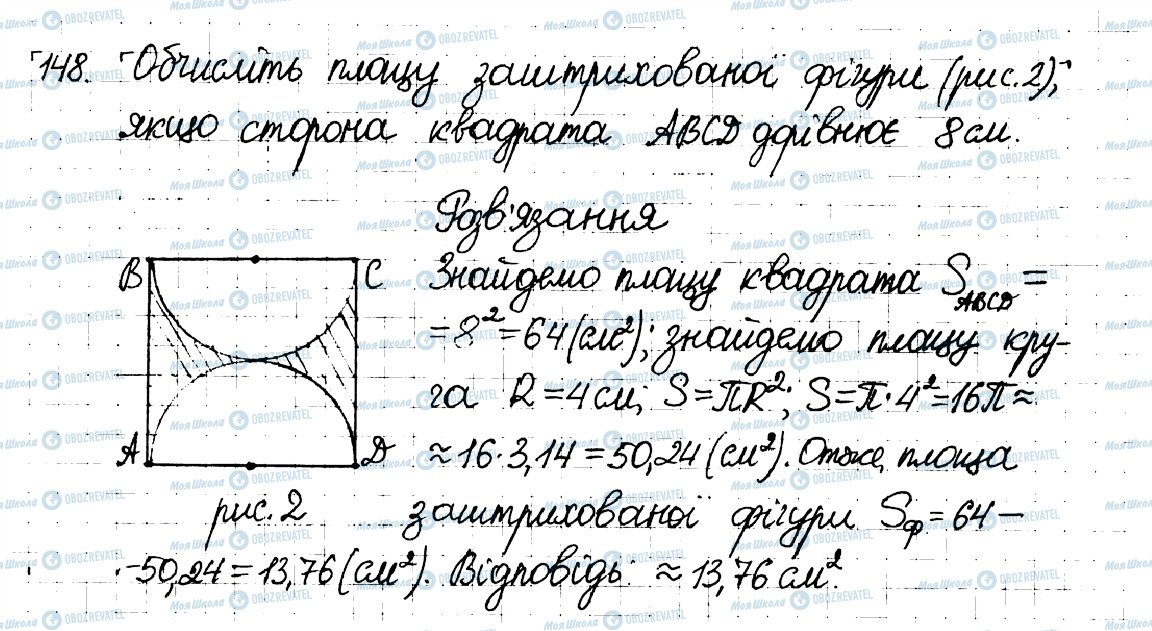 148. Обчисліть площу заштрихованої фігури (рис. 2),
якщо сторона квадрата ABCD дорівнює 8 см.
Розв'язання
B C
Знайдемо площу квадрата S_ABCD =
= 8² = 64 (см²); знайдемо площу кру-
га R = 4 см, S = πR²; S = π · 4² = 16π ≈
A D
≈ 16 · 3,14 = 50,24 (см²). Отже, площа
рис. 2
заштрихованої фігури Sф = 64 –
– 50,24 = 13,76 (см²). Відповідь: ≈ 13,76 см².
Моя Школа OBOZREVATEL